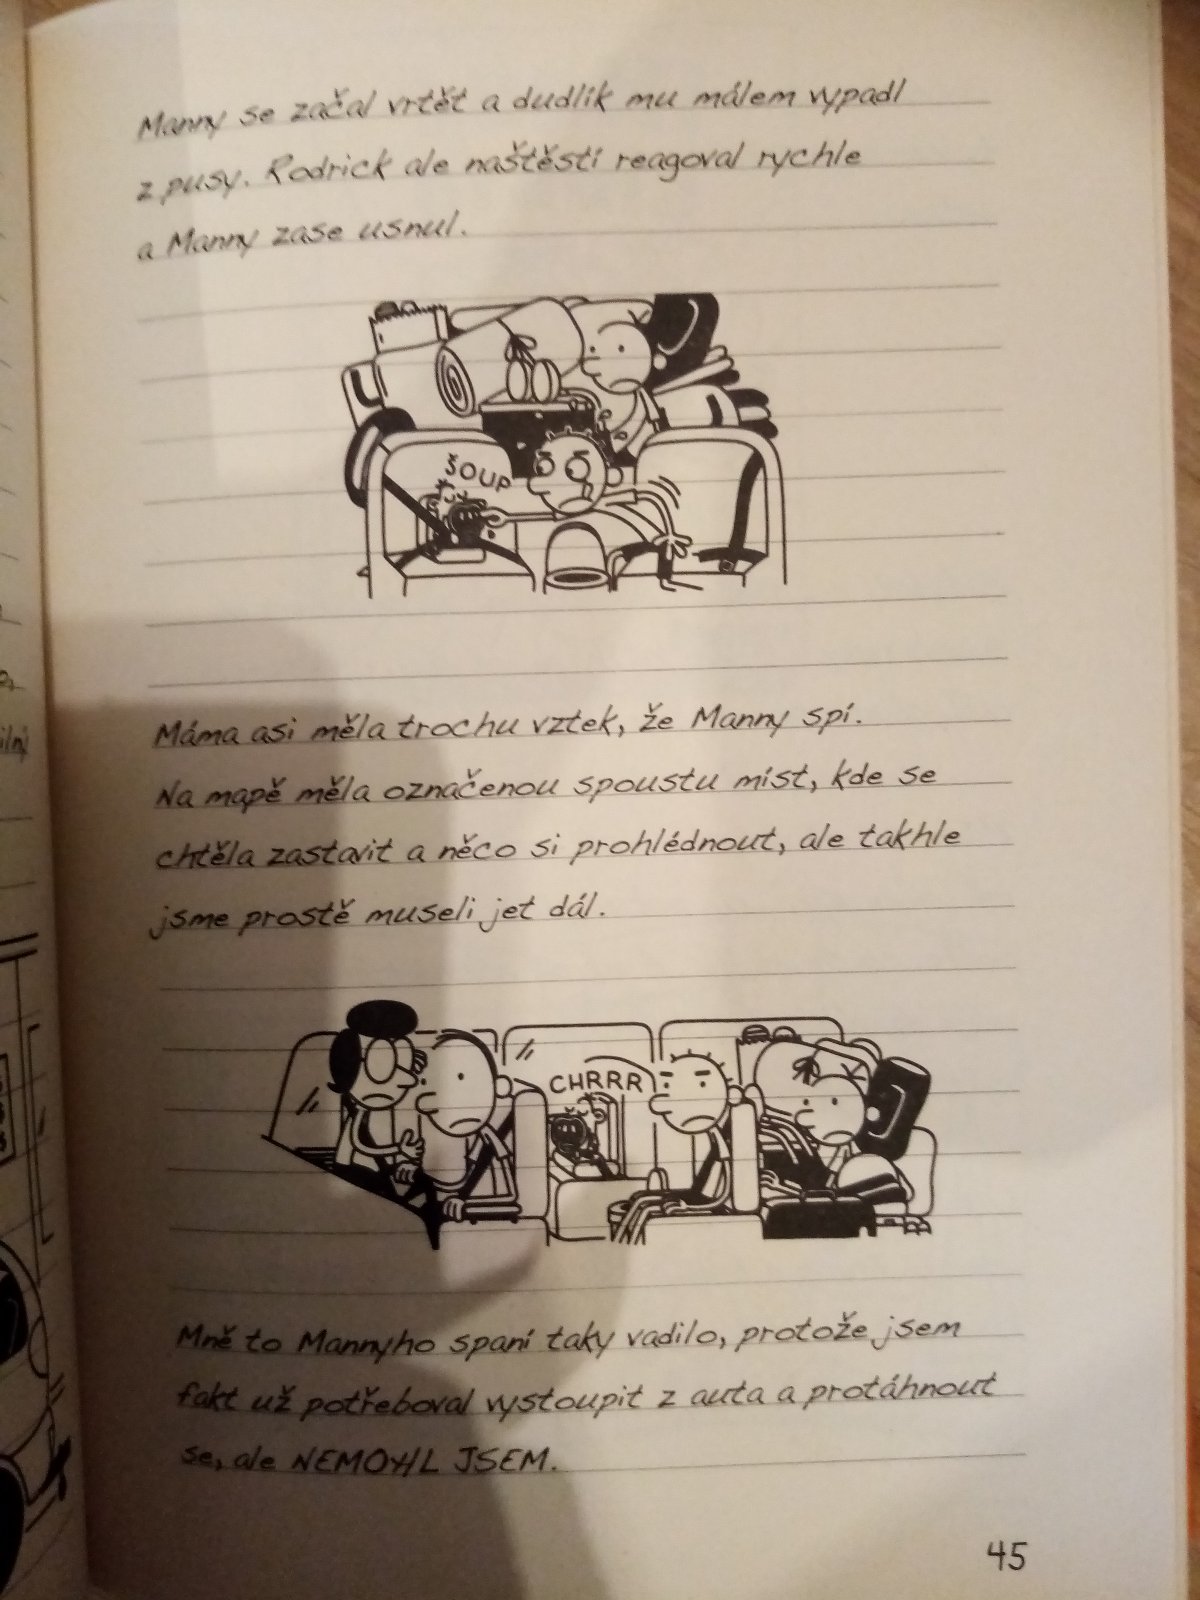 Manny se začal vrtět a dudlík mu málem vypadl
z pusy. Rodrick ale naštěstí reagoval rychle
a Manny zase usnul.
ŠOUP
Máma asi měla trochu vztek, že Manny spí.
Na mapě měla označenou spoustu míst, kde se
chtěla zastavit a něco si prohlédnout, ale takhle
jsme prostě museli jet dál.
CHRRR
Mně to Mannyho spaní taky vadilo, protože jsem
fakt už potřeboval vystoupit z auta a protáhnout
se, ale NEMOHL JSEM.
45